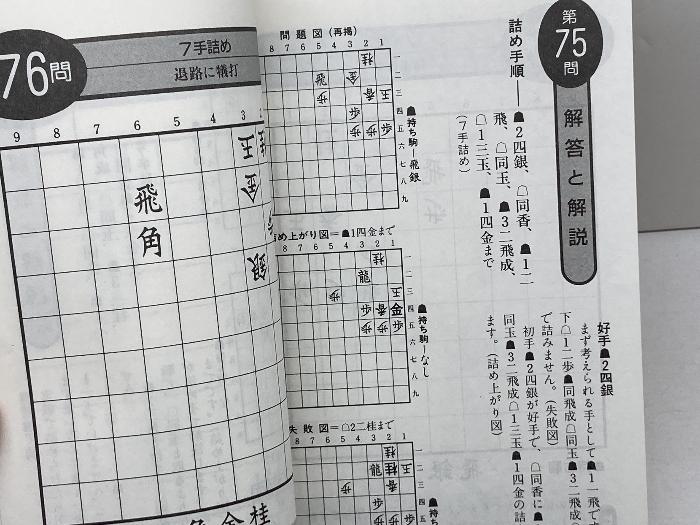 第
75
問
解答と解説
詰め手順――☗2四銀、☖同香、☗1二
飛、☖同玉、☗3二飛成、
☖1三玉、☗1四金まで
(7手詰め)
好手☗2四銀
まず考えられる手として☗1一飛で
下☖1二歩☗同飛成☖同玉☗3二飛成
で詰みません。(失敗図)
初手☗2四銀が好手で、☖同香に☗
同玉☗3二飛成☖1三玉☗1四金の詰
ます。(詰め上がり図)
問題図(再掲)
8 7 6 5 4 3 2 1
桂
飛 金
歩 香 玉
歩
歩 歩 歩
一 二 三 四 五 六 七 八 九
☗持ち駒 飛銀
詰め上がり図=☗1四金まで
8 7 6 5 4 3 2 1
桂
龍
歩 玉
歩 香 金
歩 歩 歩
一 二 三 四 五 六 七 八 九
☗持ち駒=なし
失敗図=☖2二桂まで
8 7 6 5 4 3 2 1
桂
龍 桂 玉
歩 香
歩
一 二 三 四 五
☗持ち
76問
7手詰め
退路に犠打
9 8 7 6 5 4 3
玉 桂
飛 金
角
銀
角金桂